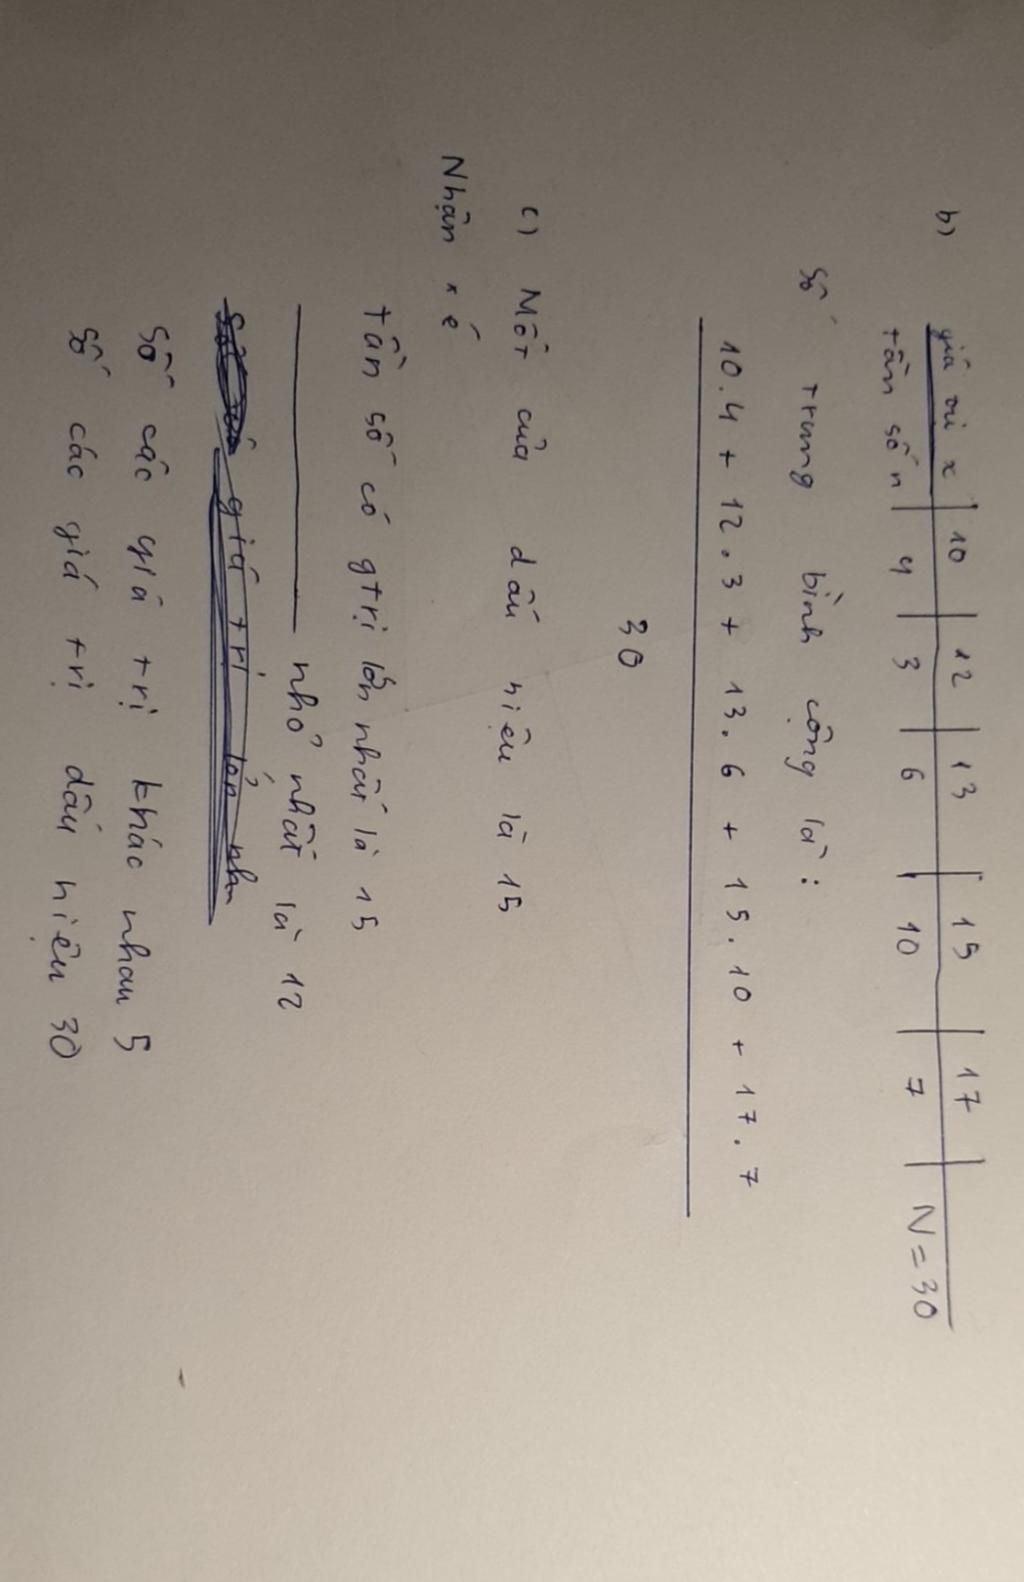 b)
giá trị x | 10 | 12 | 13 | 15 | 17
tần số n | 4 | 3 | 6 | 10 | 7 | N = 30
Số trung bình cộng là :
10.4 + 12.3 + 13.6 + 15.10 + 17.7
30
c) Mốt của dấu hiệu là 15
Nhận xé
tần số có gtrị lớn nhất là 15
nhỏ nhất là 12
giá trị lớn nh
Số các giá trị khác nhau 5
Số các giá trị dấu hiệu 30